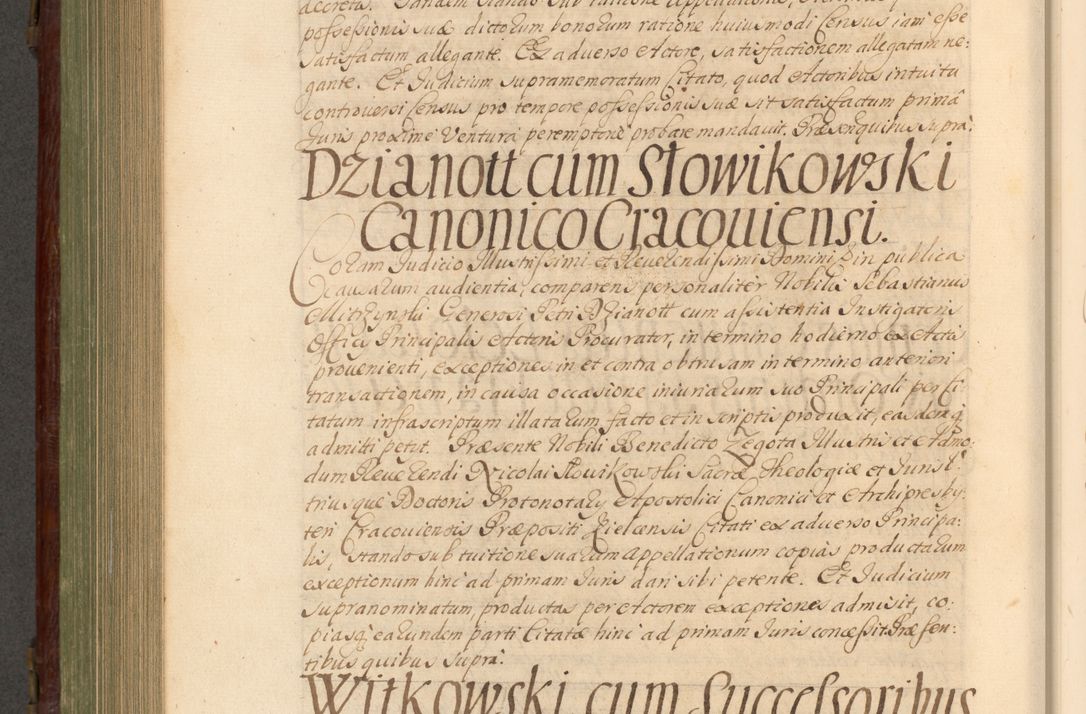 decreta. Tandem stando sub ratione appellationis,
possessionis suæ dictorum bonorum ratione huiusmodi Census iam esse
satisfactum allegante. Ex adverso Actore, satisfactionem allegatam ne:
gante. Et Iudicium supramemoratum Citato, quod Actoribus intuitu
controversi Census pro tempore possessionis suæ sit satisfactum primâ
Iuris proximè Ventura peremptoriè probare mandavit. Præsentibus quibus supra.
Dzianott cum Słowikowski
Canonico Cracoviensi.
Coram Iudicio Illustrissimi et Reverendissimi Domini in publica
causarum audientia, comparens personalitèr Nobilis Sebastianus
Miczynski Generosi Petri Dzianott cum assistentia Instigatoris
Officij Principalis Actoris Procurator, in termino hodierno ex Actis
provenienti, exceptiones in et contra obtrusam in termino anteriori
transactionem, in causa occasione iniuriarum suo Principali per Ci:
tatum infrascriptum illatarum facto et in scriptis produxit, easdemq
admitti petijt. Præsente Nobili Benedicto Zegota Illustris et Admo:
dum Reverendi Nicolai Słowikowski Sacræ Theologiæ et Iuris V:
triusque Doctoris Protonotarij Apostolici Canonici et Archipresby:
teri Cracoviensis Præpositi Kielcensis Citati ex adverso Principa:
lis, stando sub tuitione suarum Appellationum copias productarum
exceptionum hinc ad primam Iuris dari sibi petente. Et Iudicium
supranominatum, productas per Actorem exceptiones admisit, co:
piasq; earundem parti Citatæ hinc ad primam Iuris concessit. Præsen:
tibus quibus supra.
Witkowski cum Successoribus